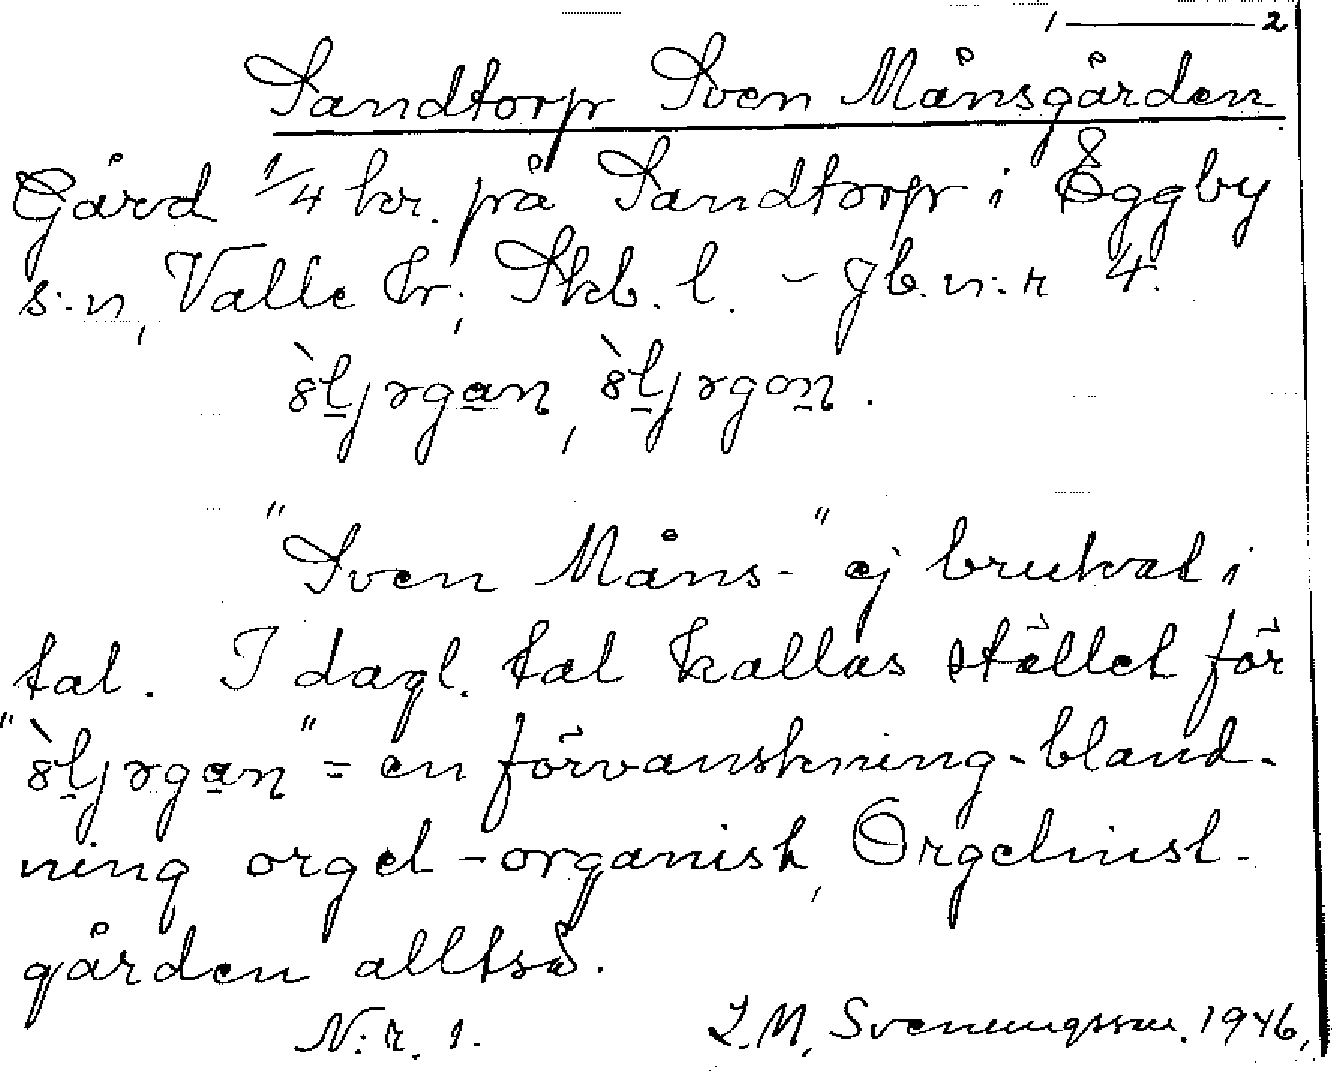 1 ——— 2
Sandtorp Sven Månsgården
Gård 1/4 hr. på Sandtorp i Eggby
s:n, Valle hr, Skb. l. – Jb. n:r 4.
"Sven Måns-" ej brukat i
tal. I dagl. tal kallas stället för
= en förvanskning-bland-
ning orgel-organist, Orgelnist-
gården alltså.
N:r. 1. L.M. Svenungsson. 1946.